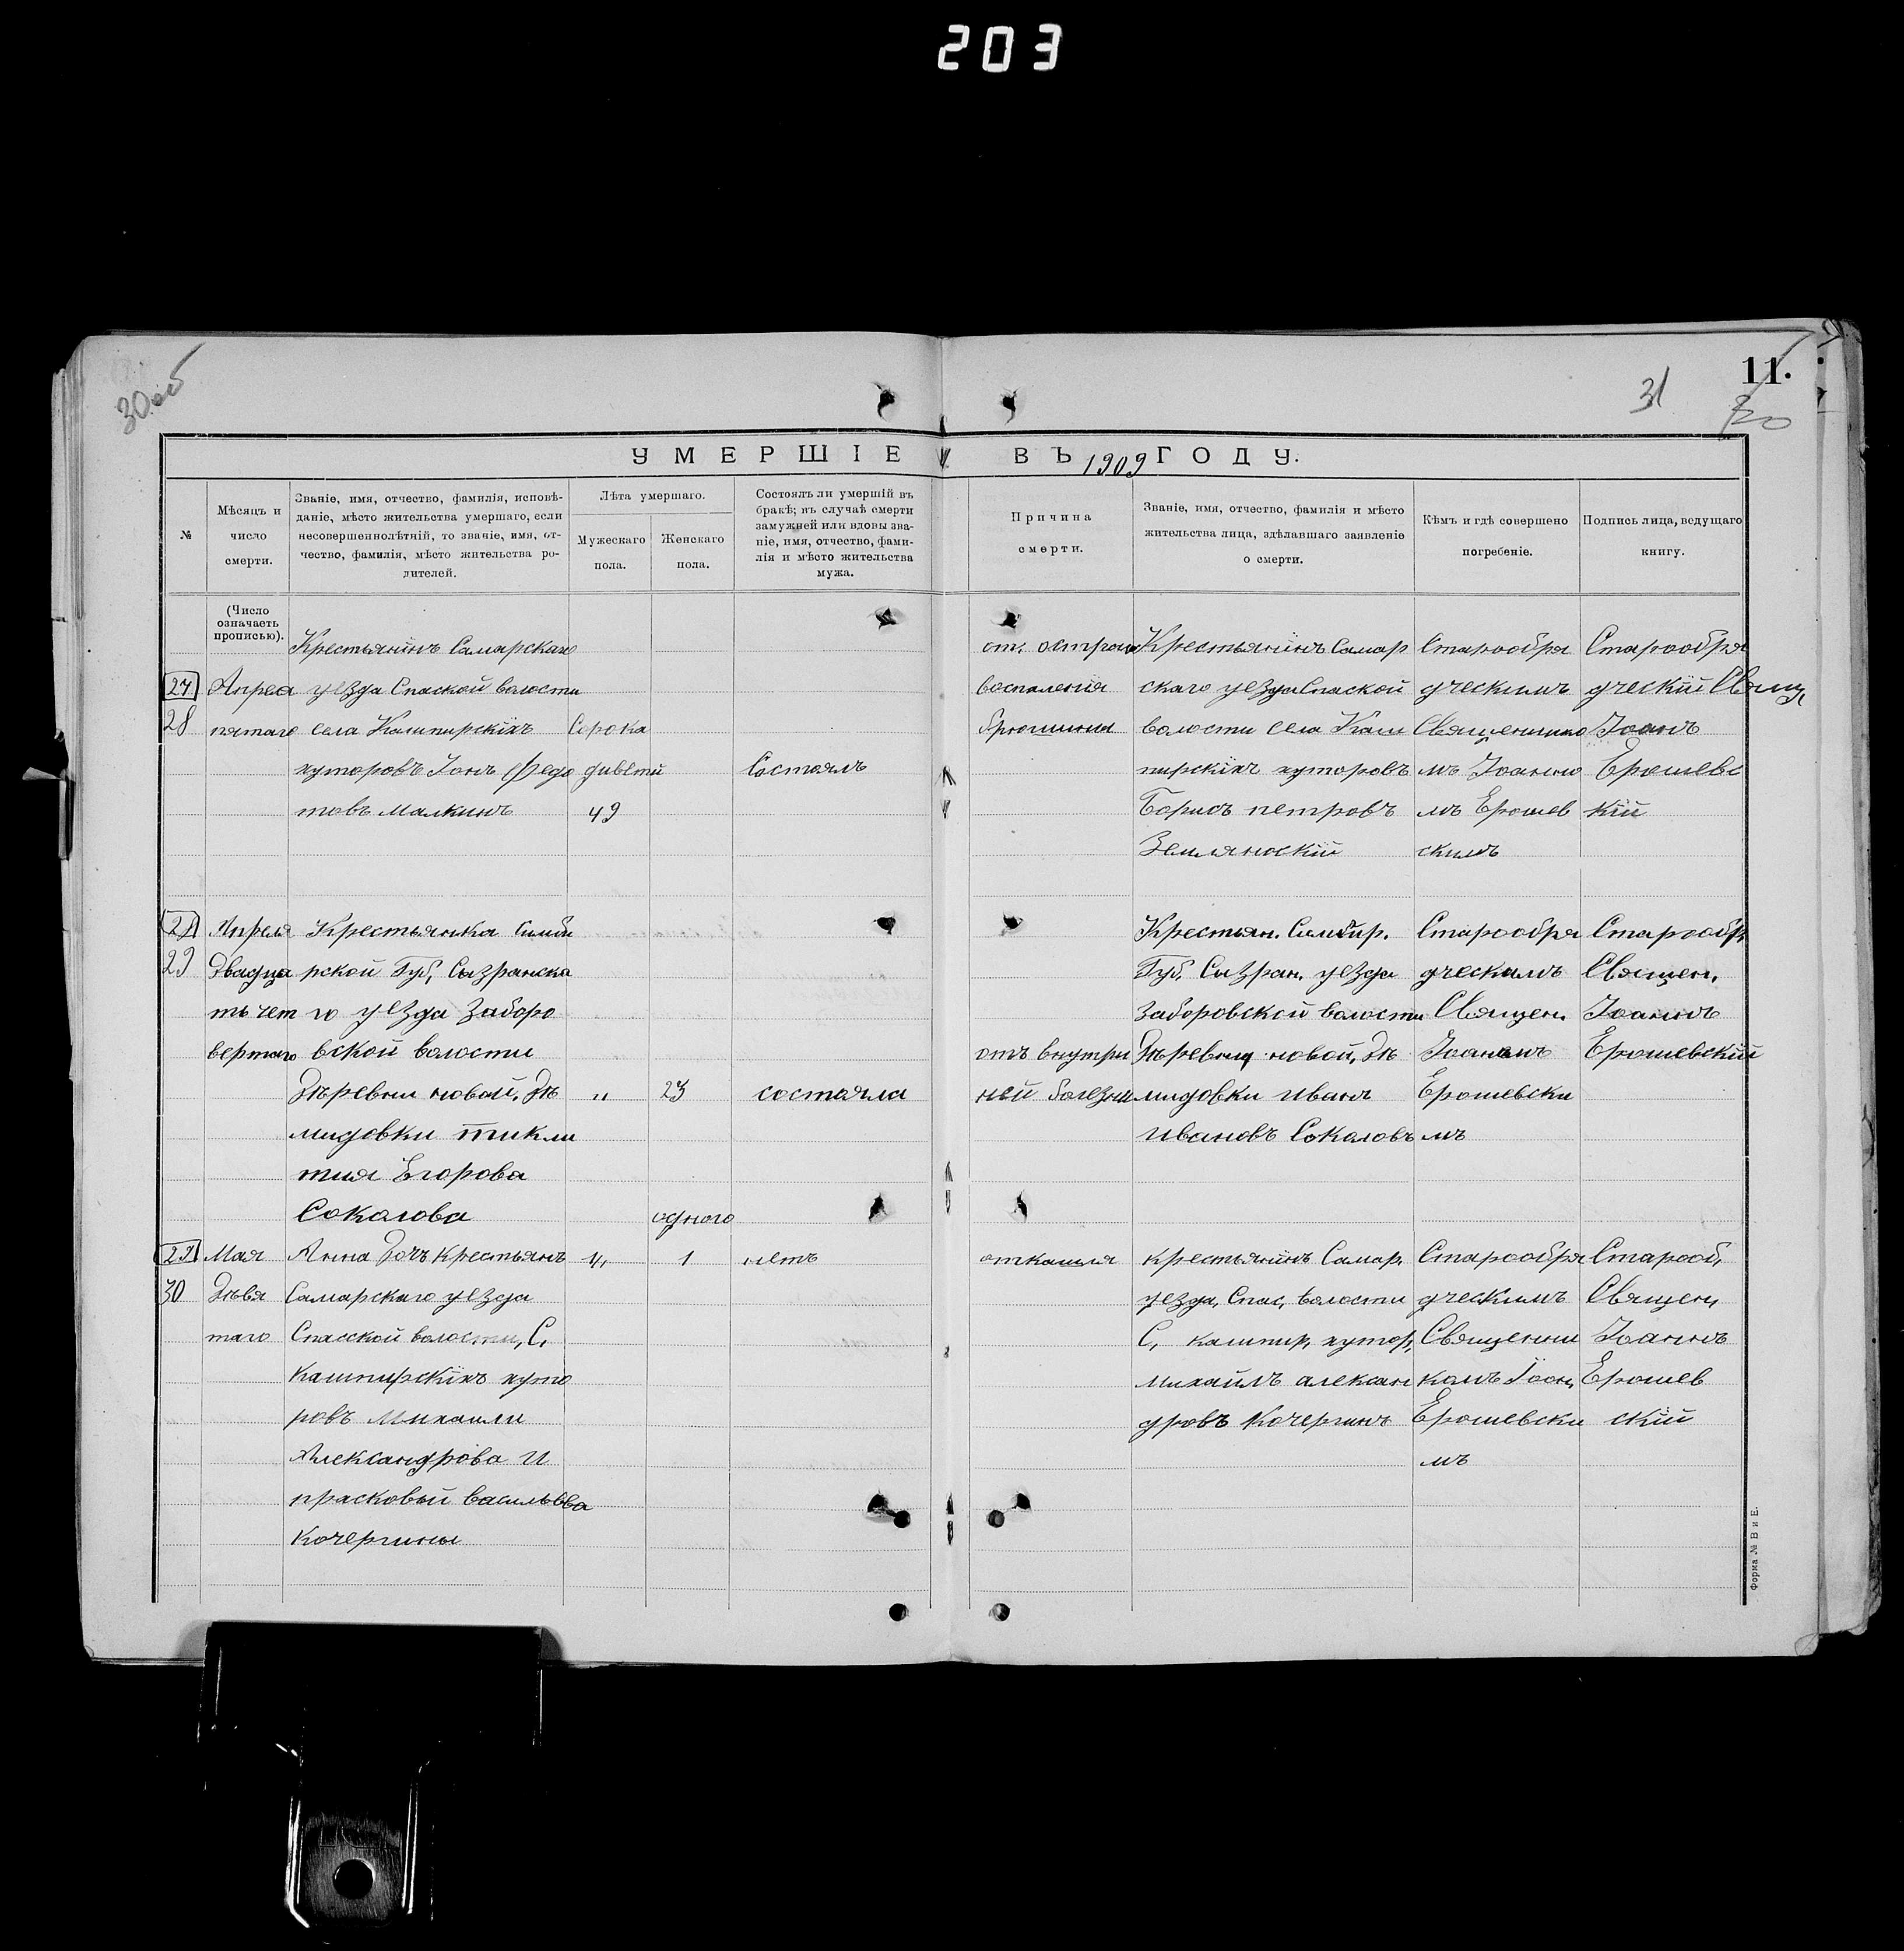 203
30 об
31
11.
УМЕРШІЕ ВЪ 1909 ГОДУ.
№
Мѣсяцъ и
число
смерти.
Званіе, имя, отчество, фамилія, исповѣ-
даніе, мѣсто жительства умершаго, если
несовершеннолѣтній, то званіе, имя, от-
чество, фамилія, мѣсто жительства ро-
дителей.
Лѣта умершаго.
Мужескаго
пола.
Женскаго
пола.
Состоялъ ли умершій въ
бракѣ; въ случаѣ смерти
замужней или вдовы зва-
ніе, имя, отчество, фами-
лія и мѣсто жительства
мужа.
Причина
смерти.
Званіе, имя, отчество, фамилія и мѣсто
жительства лица, здѣлавшаго заявленіе
о смерти.
Кѣмъ и гдѣ совершено
погребеніе.
Подпись лица, ведущаго
книгу.
(Число
означаетъ
прописью).
27
28
Апреа
пятаго
Крестьянинъ Самарскаго
уезда Спаской волости
села Кашпирскихъ
хуторовъ Іонъ Федо
товъ Малкинъ
Сорока
дивети
49
Состоялъ
от. острого
воспаления
брюшины
Крестьянинъ Самар
скаго уезда Спаской
волости села Каш
пирскихъ хуторовъ
Борисъ петровъ
Землянюский
Старообря
дческимъ
Священнико
мъ Іоанно
мъ Ерошев
скимъ
Старообря
дческий Свящ,
Іоанъ
Ерошевс
кий
28
29
Апреля
Двадца
ть чет
вертаго
Крестьянка Симби
рской Губ, Сызранска
го уезда Заборо
вской волости
Дѣревни новой, Дѣ
мидовки Тикли
тия Егорова
Сокалова
"
23
состояла
отъ внутри
ней болезни
Крестьян. Симбир.
Губ, Сызран, уезда
Заборовской волости
Дѣревни новой, Дѣ
мидовки иванъ
ивановъ Сокаловъ
Старообря
дческимъ
Священ.
Іоаномъ
Ерошевски
мъ
Старообр
Священ,
Іоаннъ
Ерошевский
29
30
Мая
Дѣвя
таго
Анна Дочь крестьянъ
Самарскаго уезда
Спасской волости, С,
Кашпирскихъ хуто
ровъ Михаили
Александрова и
прасковьи васильева
Кочергины
"
одного
1
нетъ
от кашля
крестьянинъ Самар.
уезда, Спас, волости
С, кашпир, хутор,
михаилъ алексан
дровъ Кочергинъ
Старообря
дческимъ
Священни
комъ Іоан,
Ерошевски
мъ
Старооб,
Священ,
Іоаннъ
Ерошев
ский
Форма № В и Е.